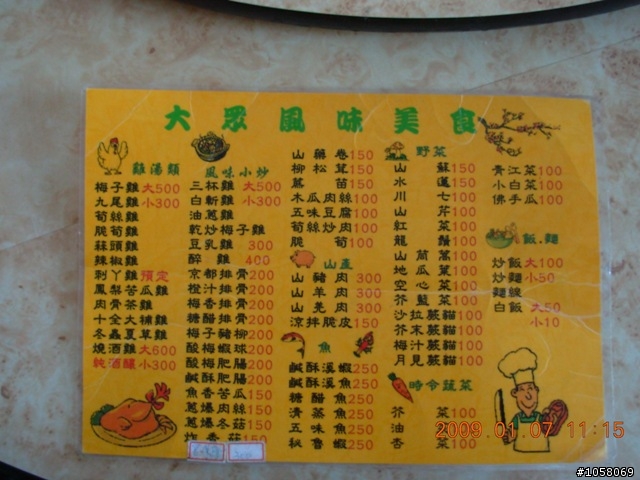 大眾風味美食
雞湯類
梅子雞 大500
九尾雞 小300
筍絲雞
脆筍雞
蒜頭雞
辣椒雞
刺丫雞 預定
鳳梨苦瓜雞
肉骨茶雞
十全大補雞
冬蟲夏草雞
燒酒雞 大600
純酒釀 小300
風味小炒
三杯雞 大500
白斬雞 小300
油蔥雞
乾炒梅子雞
豆乳雞 300
醉雞 400
京都排骨200
橙汁排骨200
梅香排骨200
糖醋排骨200
梅子豬柳200
酸梅蝦球200
酸梅肥腸200
鹹酥肥腸200
魚香苦瓜150
蔥爆肉絲150
蔥爆冬菇150
炸香菇150
山藥卷150
柳松茸150
木瓜肉絲100
五味豆腐100
筍絲炒肉100
脆筍100
山產
山豬肉300
山羊肉300
山羌肉300
涼拌脆皮150
魚
鹹酥溪蝦250
鹹酥溪魚250
糖醋魚250
清蒸魚250
五味魚250
秘魯蝦250
野菜
山蘇150
水蓮150
川七100
山芹100
紅菜100
龍鬚100
山茼萵100
地瓜葉100
空心菜100
芥藍菜100
沙拉蕨貓100
芥末蕨貓100
梅汁蕨貓100
月見蕨貓100
時令蔬菜
芥菜100
油菜
杏菜100
青江菜100
小白菜100
佛手瓜100
飯.麵
炒飯 大100
炒麵 小50
麵線
白飯 大50
小10
2009.01.07 11:15
#1058069